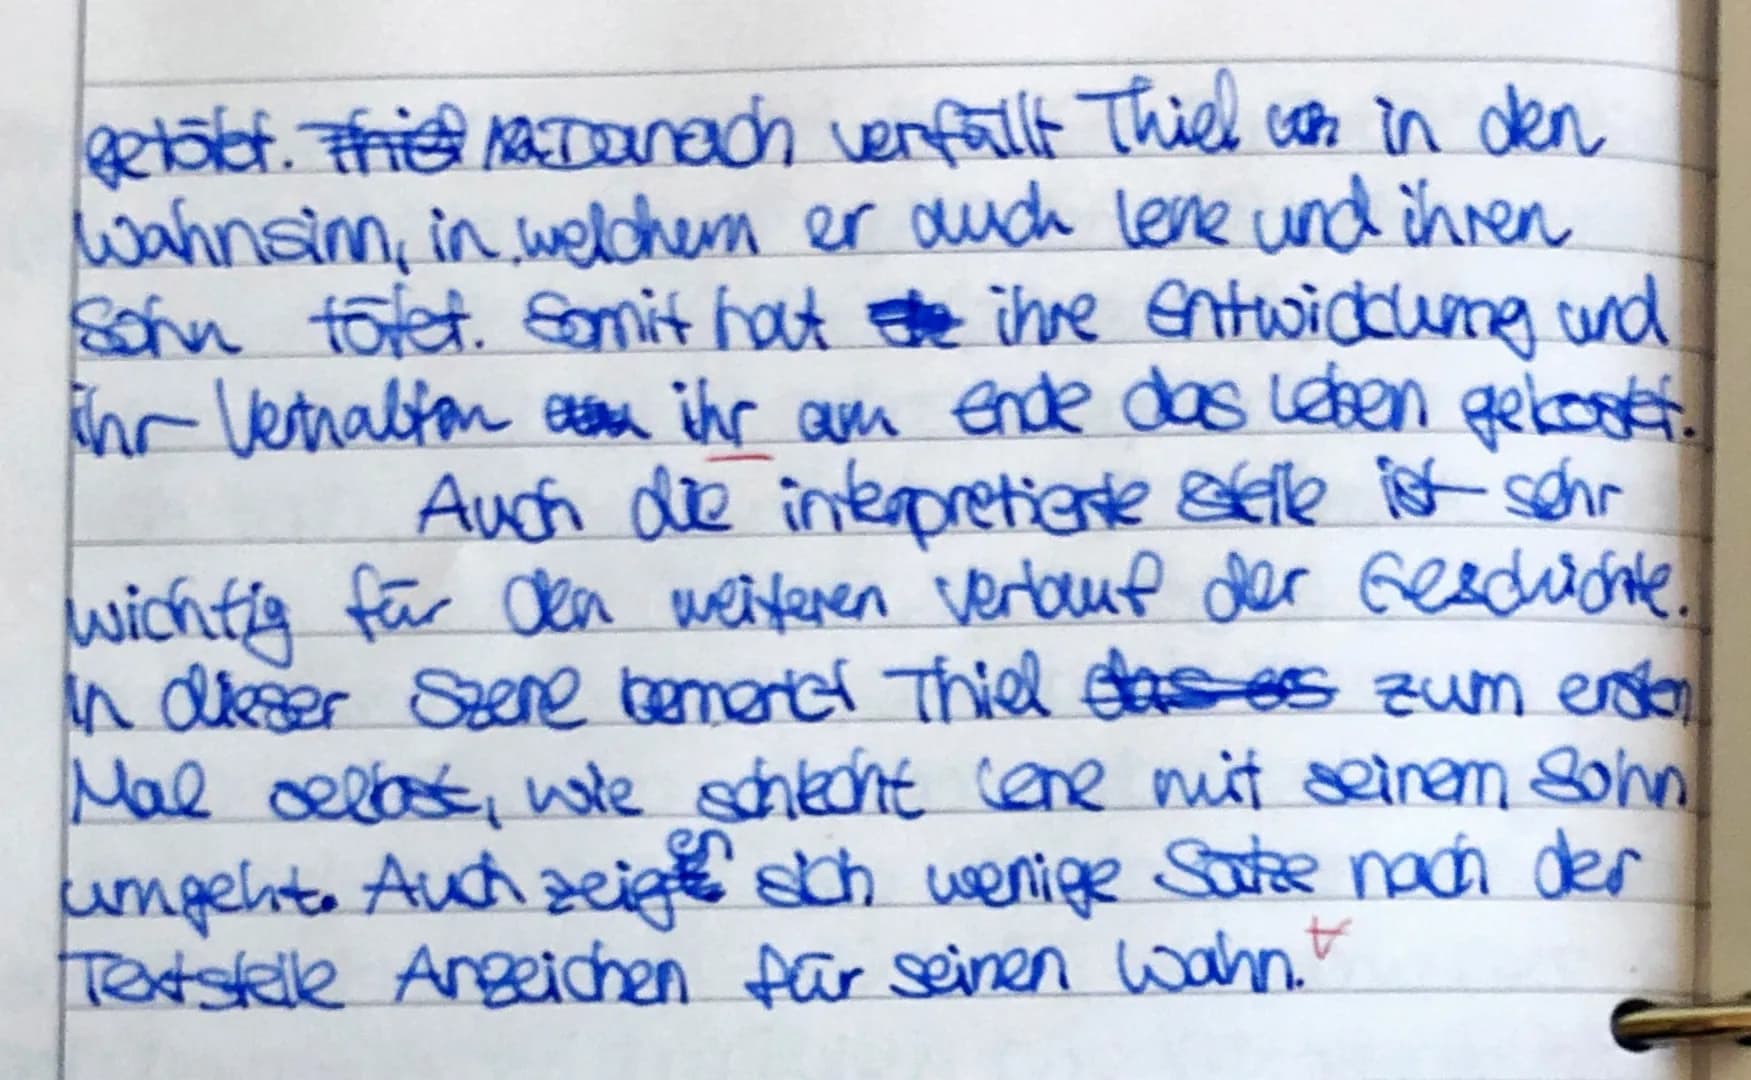 getötet. Danach verfällt Thiel in den
Wahnsinn, in welchem er auch Lene und ihren
Sohn tötet. Somit hat ihre Entwicklung und
ihr Verhalten ihr am Ende das Leben gekostet.
Auch die interpretierte Stelle ist sehr
wichtig für den weiteren Verlauf der Geschichte.
In dieser Szene bemerkt Thiel zum ersten
Mal selbst, wie schlecht Lene mit seinem Sohn
umgeht. Auch zeigen sich wenige Sätze nach der
Textstelle Anzeichen für seinen Wahn.